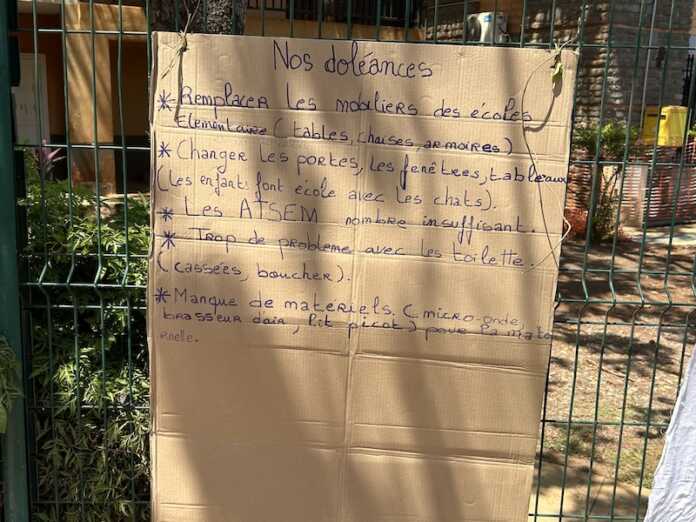 Nos doléances
* Remplacer les mobiliers des écoles
élementaire (tables, chaises, armoires)
* Changer les portes, les fenêtres, tableaux
(les enfants font école avec les chats).
* Les ATSEM nombre insuffisant.
* Trop de probleme avec les toilette.
(cassées, boucher).
* Manque de matériels. (micro-onde,
brasseur d'air, lit picot) pour la mate
rnelle.